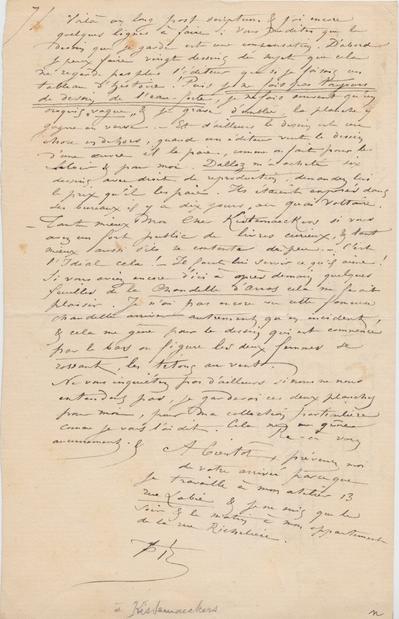 7/
Voilà un long post scriptum & j'ai encore
quelques lignes à faire. Vous me dites que le
dessin que je garde est une compensation. D'abord
je peux faire vingt dessins du sujet que cela
ne regarde pas plus l'éditeur que si je faisais un
tableau d'histoire. Puis je ne fais pas toujours
de dessin de l'eau forte, je le fais souvent qu'un
croquis "vague", & je grave d'emblée, la planche y
gagne en verve. — Et d'ailleurs le dessin est une
chose en dehors, quand un éditeur veut le dessin
d'une œuvre il le paie, comme on fait pour le
& pour moi. Dalloz m'a acheté six
dessins avec droit de reproduction, demandez lui
le prix qu'il les paie. Ils étaient exposés dans
ses bureaux il y a dix jours, au quai Voltaire.
— Tant mieux Mon Cher Kistemaeckers si vous
avez un fort public de livres curieux, & tant
mieux aussi s'ils se contente de peu — C'est
l'Idéal cela — Il faut lui servir ce qu'il aime!
Si vous aviez encore d'ici à après demain quelques
feuilles de la Chandelle d'Arras cela me ferait
plaisir. Je n'ai pas encore vu cette fameuse
chandelle arriver autrement qu'en incident!
& cela me gêne pour le dessin qui est commencé
par le bas où figure les deux femmes se
rossant, les tétons au vent.
Ne vous inquiétez pas d'ailleurs si nous ne nous
entendons pas, je garderai ces deux planches
pour moi, pour ma collection particulière
comme je vous l'ai dit. Cela ne me gênera
aucunement. &
A Bientôt & prévenez moi
de votre arrivée parceque
je travaille à mon atelier 13
rue Labie & je ne suis que le
soir & le matin à mon appartement
de la rue Richelieu.
à Kistemaeckers
n